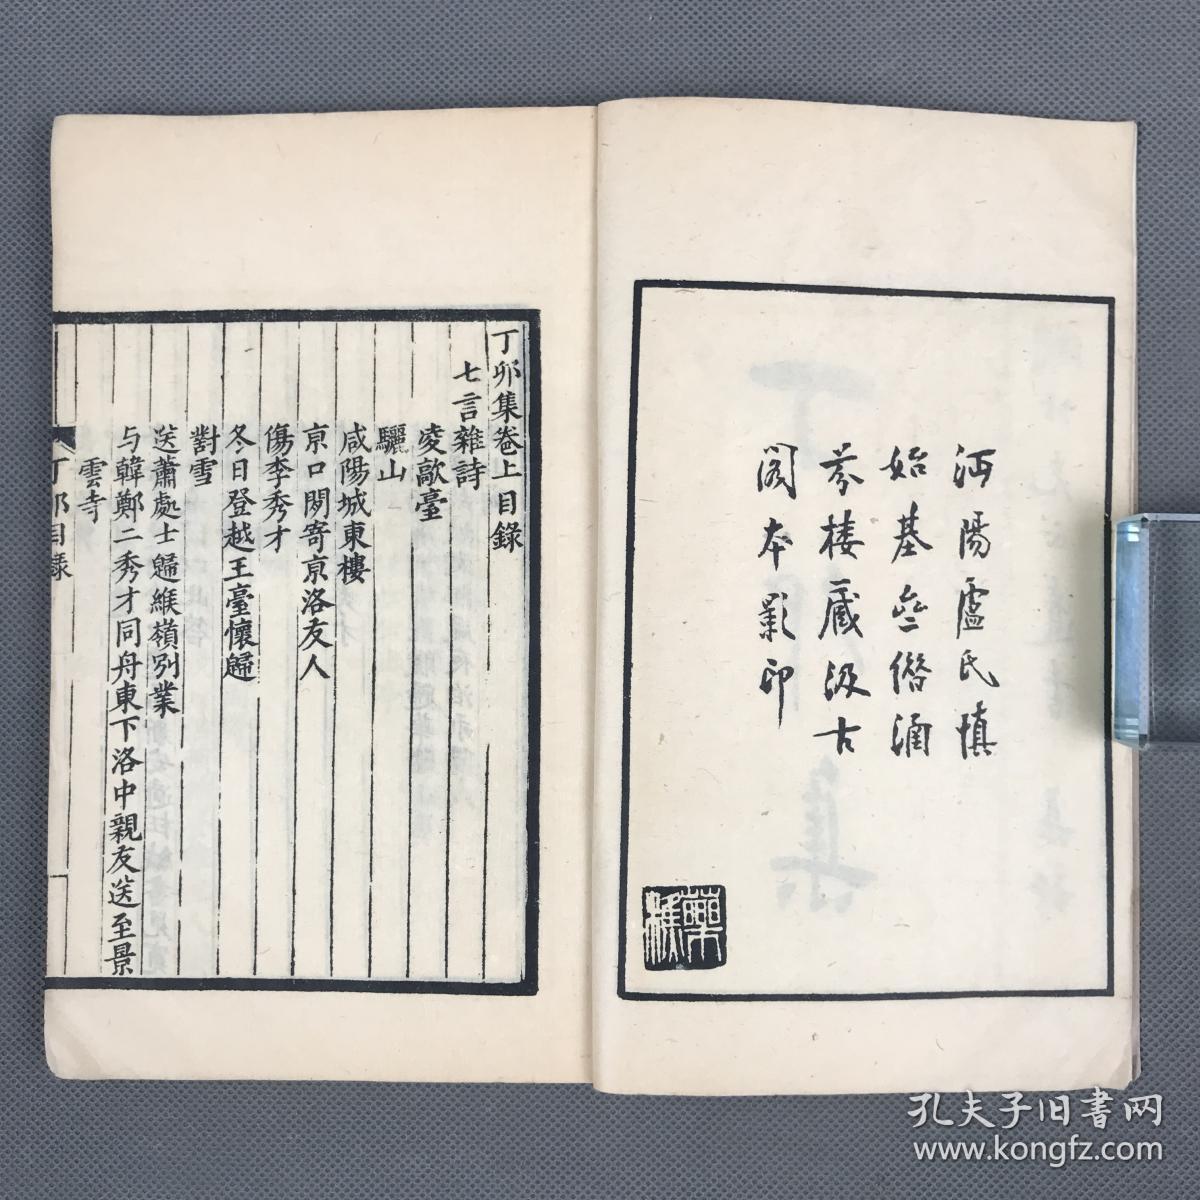 沔陽盧氏慎
始基齋借涵
芬樓藏汲古
閣本影印
藥樵
丁卯集卷上目錄
七言雜詩
凌歊臺
驪山
咸陽城東樓
京口閒寄京洛友人
傷李秀才
冬日登越王臺懷歸
對雪
送蕭處士歸緱嶺別業
与韓鄭二秀才同舟東下洛中親友送至景
雲寺
丁卯目錄
孔夫子旧书网
www.kongfz.com